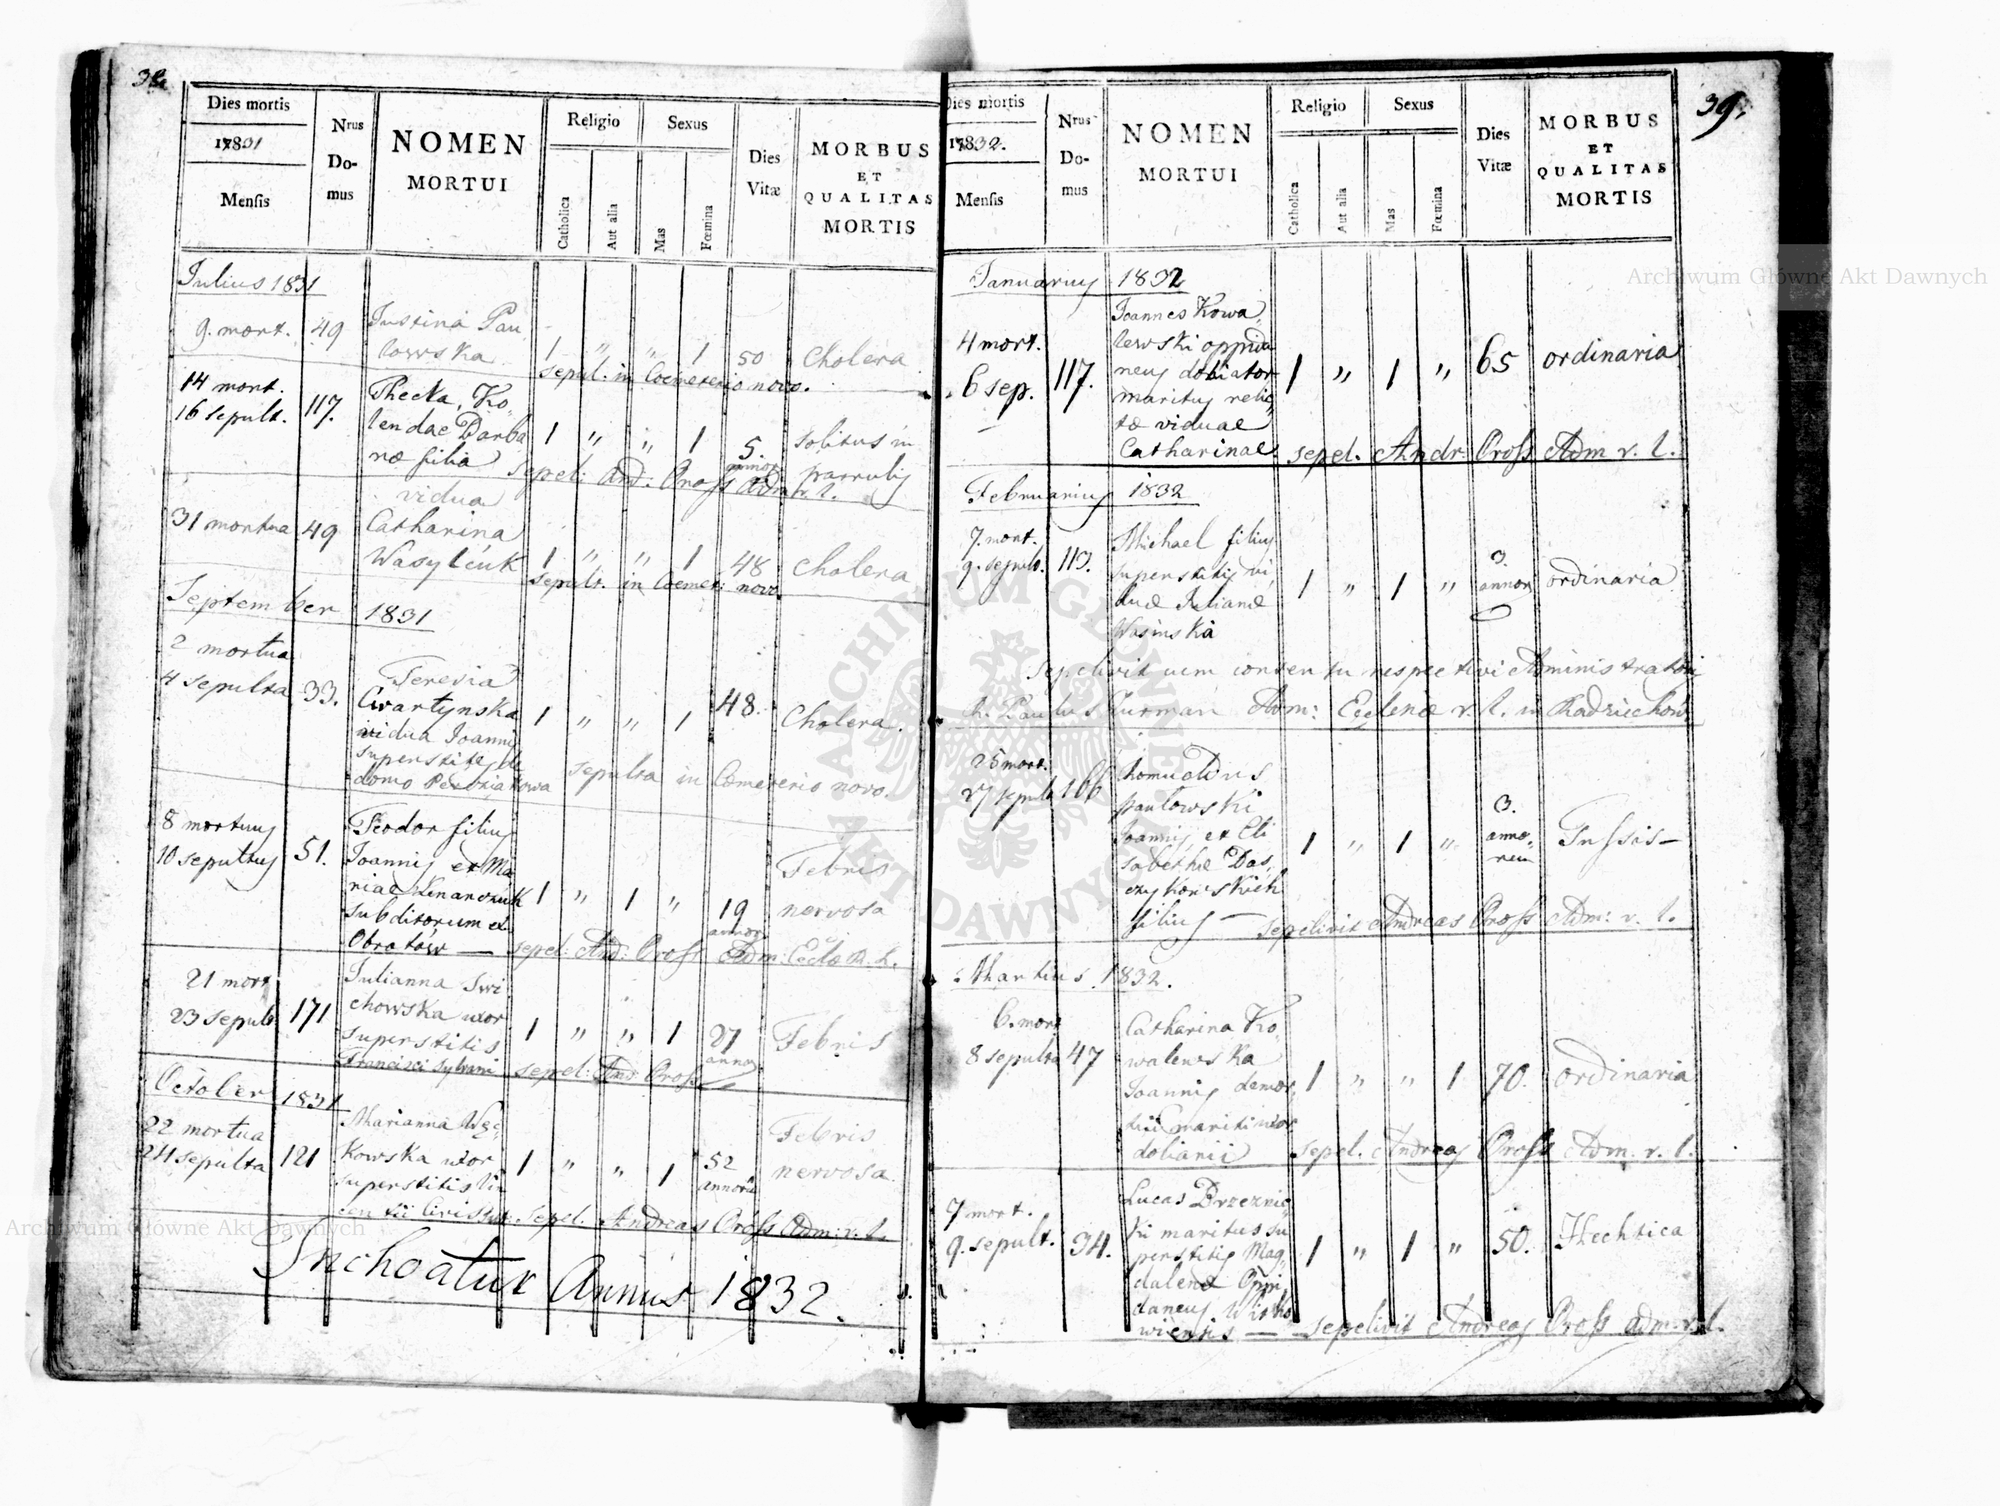 38.
Dies mortis
1831
Mensis
Nrus
Do-
mus
NOMEN
MORTUI
Religio
Catholica
Aut alia
Sexus
Mas
Fœmina
Dies
Vitæ
MORBUS
ET
QUALITAS
MORTIS
Julius 1831
9. mort. 49 Justina Pau
lowska 1 " " 1 50 Cholera
sepul. in Coemeterio novo.
14 mort.
16 sepult. 117. Thecka, Ko,
lendae Barba
ræ filia 1 " " 1 5. annor solitus in
parvulis
sepel: And: Pross Adm r. l.
31 mortua 49 vidua
Catharina
Wasylciuk 1 " " 1 48 Cholera
sepult. in Coemet: novo
September 1831
2 mortua
4 sepulta 33. Teresia
Cwartynska
vidua Joannis
superstite, de
domo 1 " " 1 48. Cholera.
sepulta in Coemeterio novo.
8 mortuus
10 sepultus 51. Teodor filius
Joannis et Ma
riae
subditorum ex
Obratów — 1 " 1 " 19 annor Febris
nervosa
sepel: And: Pross Adm: Eccla R. L.
21 mort
23 sepult 171 Julianna Swi
chowska uxor
superstitis
Francisci 1 " " 1 27 annor Febris
sepel: And: Pross
October 1831
22 mortua
24 sepulta 121 Marianna Węc
kowska uxor
superstitis Vi
centii 1 " " 1 52 annor Febris
nervosa
sepel. Andreas Pross Adm: r. l.
Inchoatur Annus 1832.
39.
Dies mortis
1832.
Mensis
Nrus
Do-
mus
NOMEN
MORTUI
Religio
Catholica
Aut alia
Sexus
Mas
Fœmina
Dies
Vitæ
MORBUS
ET
QUALITAS
MORTIS
Januarius 1832
4 mort.
6 sep. 117. Joannes Kowa,
lewski oppida
neus doliator
maritus relic,
tæ viduae
Catharinae 1 " 1 " 65 ordinaria
sepel. Andr: Pross Adm r. l.
Februarius 1832
7. mort.
9. sepult. 113. Michael filius
superstitis vi
duæ Julianæ
Wasinska 1 " 1 " 3. annor ordinaria
sepelivit cum consensu respectivi Administratori
Paulus Adm: Ecclesiæ r. l. in Radziechów
25 mort.
27 sepult 166 Romualdus
Pawlowski
Joannis et Eli
sabethæ Das,
filius — 1 " 1 " 3. anno,
rum Tussis —
sepelivit Andreas Pross Adm: r. l.
Martius 1832.
6. mort
8 sepulta 47 Catharina Ko,
walewska
Joannis demor,
tui mariti uxor
doliarii 1 " " 1 70. ordinaria
sepel. Andreas Pross Adm. r. l.
7 mort.
9. sepult. 34. Lucas Brzeznic,
ki maritus su
perstitis Mag,
dalenæ Oppi
daneus Witko
wiensis — 1 " 1 " 50. Hechtica
sepelivit Andreas Pross adm. r. l.
Archiwum Główne Akt Dawnych
Archiwum Główne Akt Dawnych
ARCHIWUM GŁÓWNE
AKT DAWNYCH